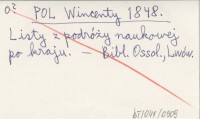 o? POL Wincenty 1848.
Listy z podróży naukowej
po kraju. — Bibl. Ossol., Lwów.